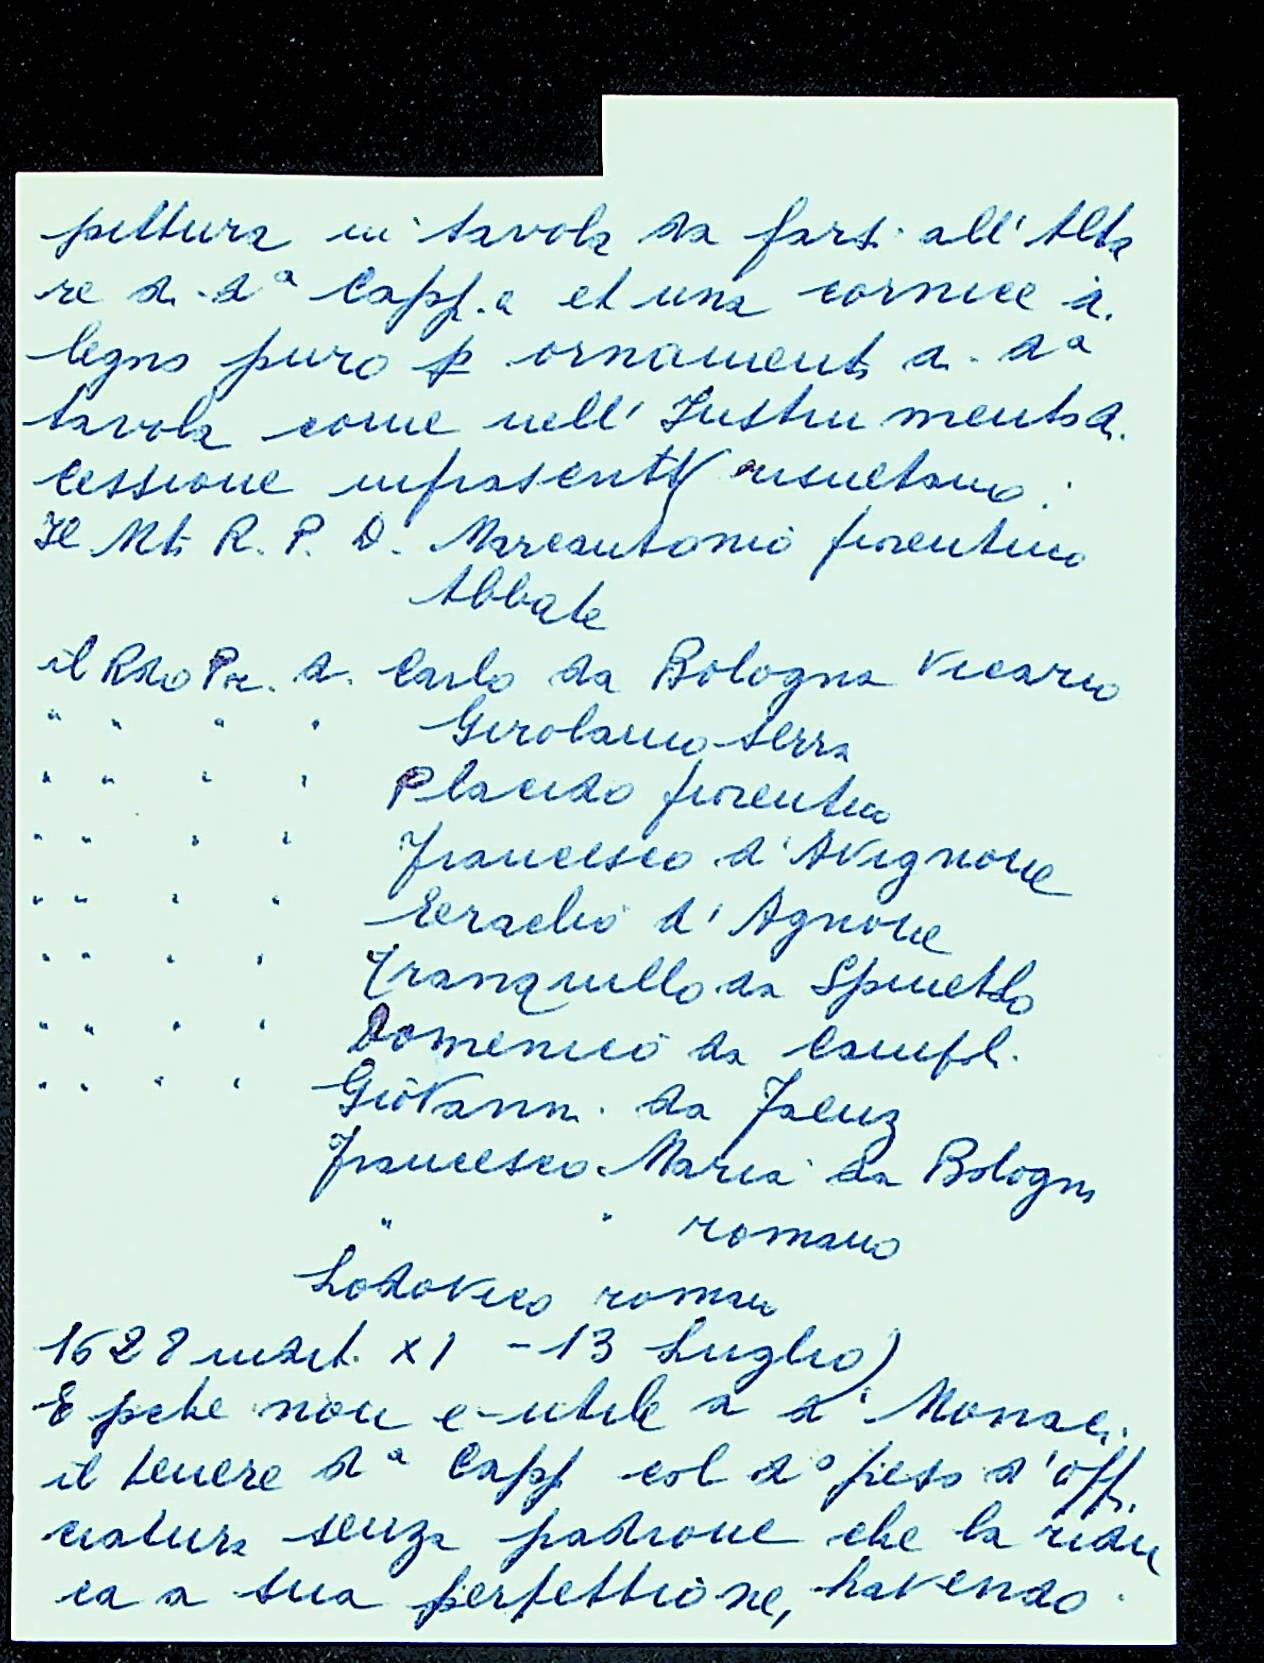 pittura in tavola da farsi all'Alta
re di dᵃ Capp.a et una cornice di
legno puro p ornamento di dᵃ
tavola come nell'Instrumento di
cessione infrascritti risultano:
Il Mto R. P. D. Marcantonio fiorentino
Abbate
il Rdo Pre. D. Carlo da Bologna Vicario
" " " " Girolamo Serra
" " " " Placido fiorentino
" " " " Francesco d'Avignone
" " " " Eraclio d'Agnone
" " " " Tranquillo da Spineto
" " " " Domenico da Campli
" " " " Giovanni da Faenz
Francesco Maria da Bologna
" " romano
Lodovico romano
1628 indict. XI - 13 Luglio)
E pche non e utile a d' Monaci
il tenere dᵃ Capp col dº peso d'offi
ciatura senza padrone che la ridu
ca a sua perfettione, havendo